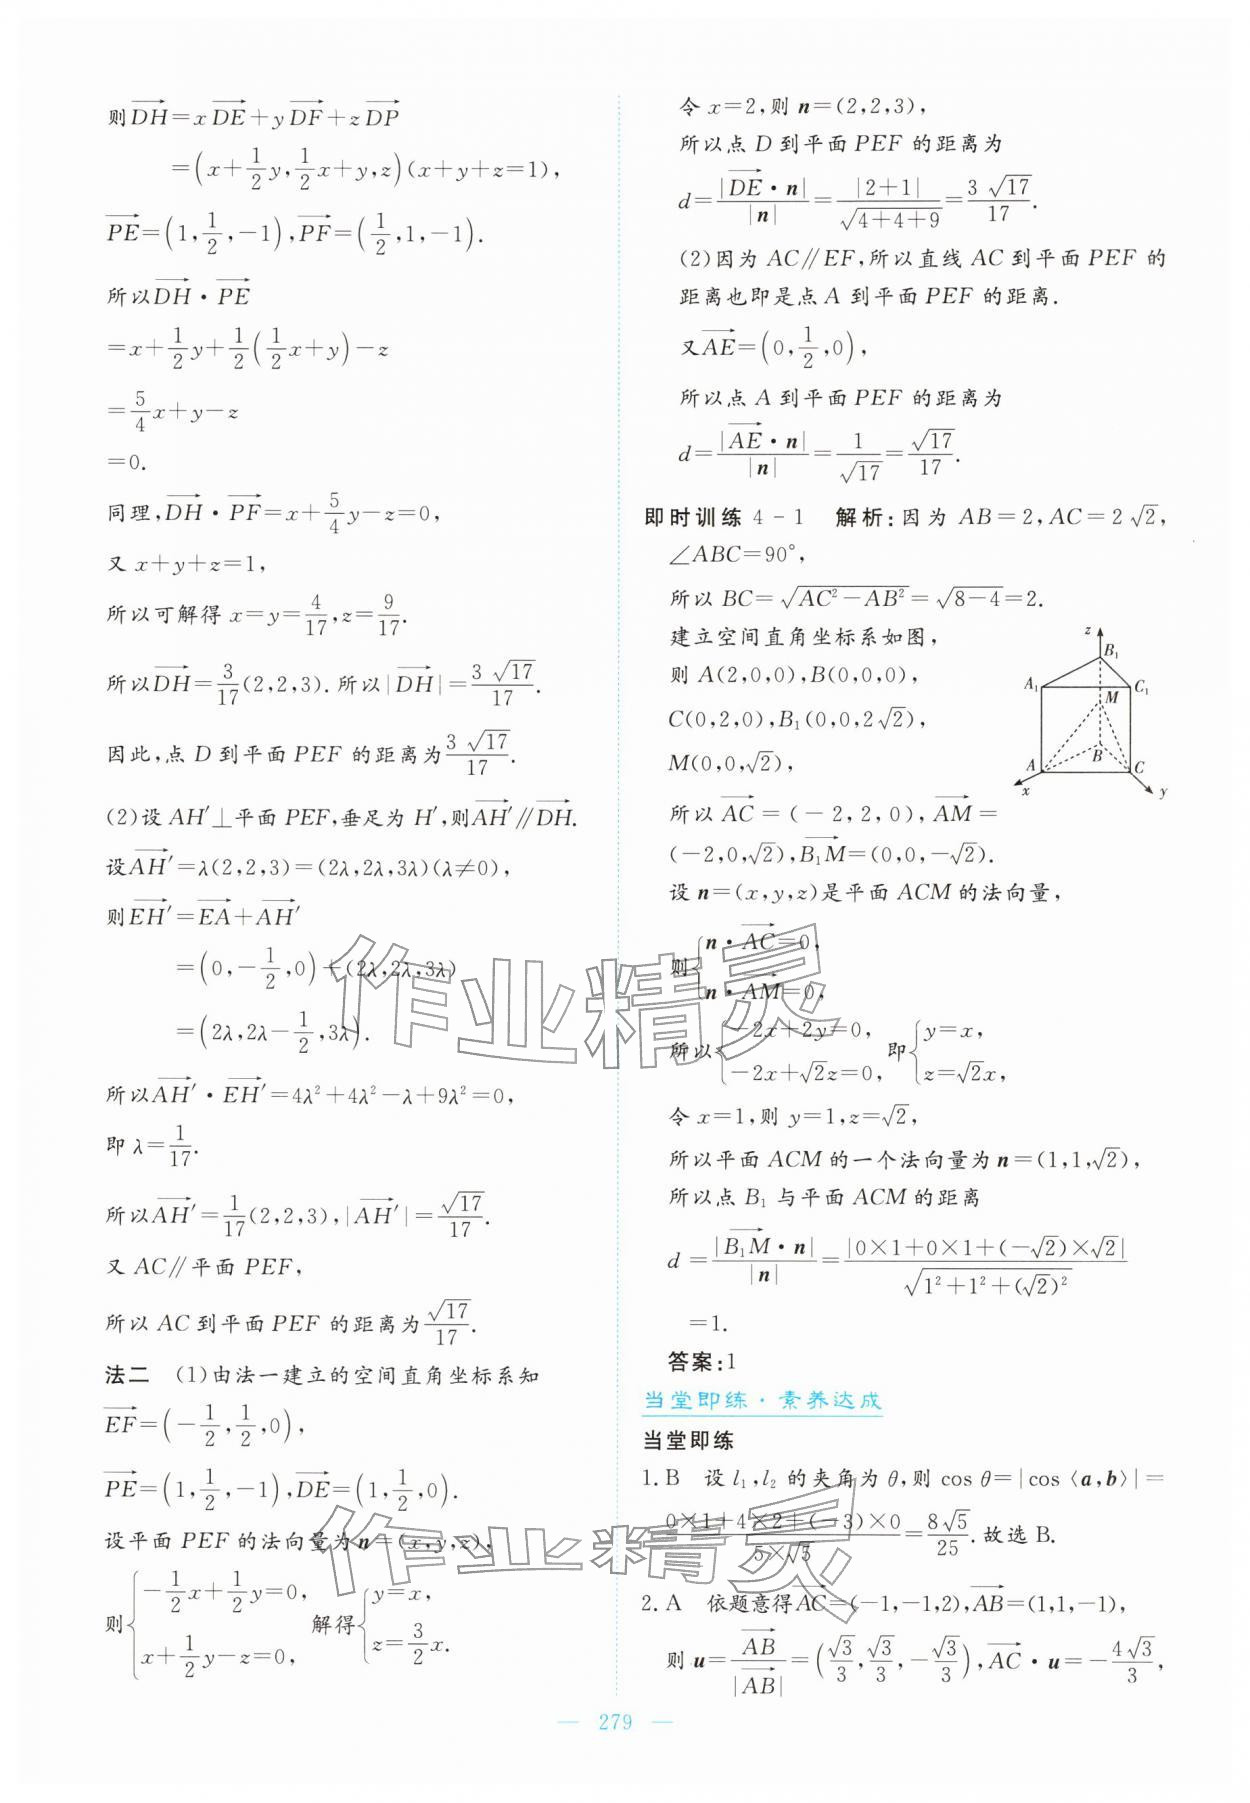 则$\overrightarrow{DH}=x\overrightarrow{DE}+y\overrightarrow{DF}+z\overrightarrow{DP}$
$=\left(x+\frac{1}{2}y,\frac{1}{2}x+y,z\right)(x+y+z=1)$,
$\overrightarrow{PE}=\left(1,\frac{1}{2},-1\right),\overrightarrow{PF}=\left(\frac{1}{2},1,-1\right)$.
所以$\overrightarrow{DH}\cdot\overrightarrow{PE}$
$=x+\frac{1}{2}y+\frac{1}{2}\left(\frac{1}{2}x+y\right)-z$
$=\frac{5}{4}x+y-z$
$=0$.
同理,$\overrightarrow{DH}\cdot\overrightarrow{PF}=x+\frac{5}{4}y-z=0$,
又 $x+y+z=1$,
所以可解得 $x=y=\frac{4}{17},z=\frac{9}{17}$.
所以$\overrightarrow{DH}=\frac{3}{17}(2,2,3)$.所以$|\overrightarrow{DH}|=\frac{3\sqrt{17}}{17}$.
因此,点 D 到平面 PEF 的距离为$\frac{3\sqrt{17}}{17}$.
(2)设 AH′⊥平面 PEF,垂足为 H′,则$\overrightarrow{AH'}∥\overrightarrow{DH}$.
设$\overrightarrow{AH'}=λ(2,2,3)=(2λ,2λ,3λ)(λ≠0)$,
则$\overrightarrow{EH'}=\overrightarrow{EA}+\overrightarrow{AH'}$
$=\left(0,-\frac{1}{2},0\right)+(2λ,2λ,3λ)$
$=\left(2λ,2λ-\frac{1}{2},3λ\right)$.
所以$\overrightarrow{AH'}\cdot\overrightarrow{EH'}=4λ^2+4λ^2-λ+9λ^2=0$,
即 $λ=\frac{1}{17}$.
所以$\overrightarrow{AH'}=\frac{1}{17}(2,2,3),|\overrightarrow{AH'}|=\frac{\sqrt{17}}{17}$.
又 AC∥平面 PEF,
所以 AC 到平面 PEF 的距离为$\frac{\sqrt{17}}{17}$.
法二 (1)由法一建立的空间直角坐标系知
$\overrightarrow{EF}=\left(-\frac{1}{2},\frac{1}{2},0\right)$,
$\overrightarrow{PE}=\left(1,\frac{1}{2},-1\right),\overrightarrow{DE}=\left(1,\frac{1}{2},0\right)$.
设平面 PEF 的法向量为 n=(x,y,z),
则$\begin{cases}-\frac{1}{2}x+\frac{1}{2}y=0,\\x+\frac{1}{2}y-z=0,\end{cases}$ 解得$\begin{cases}y=x,\\z=\frac{3}{2}x.\end{cases}$
令 x=2,则 n=(2,2,3),
所以点 D 到平面 PEF 的距离为
$d=\frac{|\overrightarrow{DE}\cdot n|}{|n|}=\frac{|2+1|}{\sqrt{4+4+9}}=\frac{3\sqrt{17}}{17}$.
(2)因为 AC∥EF,所以直线 AC 到平面 PEF 的
距离也即是点 A 到平面 PEF 的距离.
又$\overrightarrow{AE}=\left(0,\frac{1}{2},0\right)$,
所以点 A 到平面 PEF 的距离为
$d=\frac{|\overrightarrow{AE}\cdot n|}{|n|}=\frac{1}{\sqrt{17}}=\frac{\sqrt{17}}{17}$.
即时训练 4-1 解析:因为 AB=2,AC=2$\sqrt{2}$,
∠ABC=90°,
所以 BC=$\sqrt{AC^2-AB^2}=\sqrt{8-4}=2$.
建立空间直角坐标系如图,
则 A(2,0,0),B(0,0,0),
C(0,2,0),B₁(0,0,2$\sqrt{2}$),
M(0,0,$\sqrt{2}$),
z
B₁
A₁
C₁
M
B
A
C
x
y
所以$\overrightarrow{AC}=(-2,2,0),\overrightarrow{AM}=$
$(-2,0,\sqrt{2}),\overrightarrow{B_1M}=(0,0,-\sqrt{2})$.
设 n=(x,y,z)是平面 ACM 的法向量,
则$\begin{cases}n\cdot\overrightarrow{AC}=0,\\n\cdot\overrightarrow{AM}=0,\end{cases}$
所以$\begin{cases}-2x+2y=0,\\-2x+\sqrt{2}z=0,\end{cases}$ 即$\begin{cases}y=x,\\z=\sqrt{2}x,\end{cases}$
令 x=1,则 y=1,z=$\sqrt{2}$,
所以平面 ACM 的一个法向量为 n=(1,1,$\sqrt{2}$),
所以点 B₁ 与平面 ACM 的距离
$d=\frac{|\overrightarrow{B_1M}\cdot n|}{|n|}=\frac{|0×1+0×1+(-\sqrt{2})×\sqrt{2}|}{\sqrt{1^2+1^2+(\sqrt{2})^2}}$
=1.
答案:1
当堂即练·素养达成
当堂即练
1.B 设 l₁,l₂ 的夹角为 θ,则 cos θ=|cos〈a,b〉|=
$\frac{0×1+4×2+(-3)×0}{5×\sqrt{5}}=\frac{8\sqrt{5}}{25}$.故选 B.
2.A 依题意得$\overrightarrow{AC}=(-1,-1,2),\overrightarrow{AB}=(1,1,-1)$,
则 $u=\frac{\overrightarrow{AB}}{|\overrightarrow{AB}|}=\left(\frac{\sqrt{3}}{3},\frac{\sqrt{3}}{3},-\frac{\sqrt{3}}{3}\right),\overrightarrow{AC}\cdot u=-\frac{4\sqrt{3}}{3}$,
— 279 —
作业精灵
作业精灵